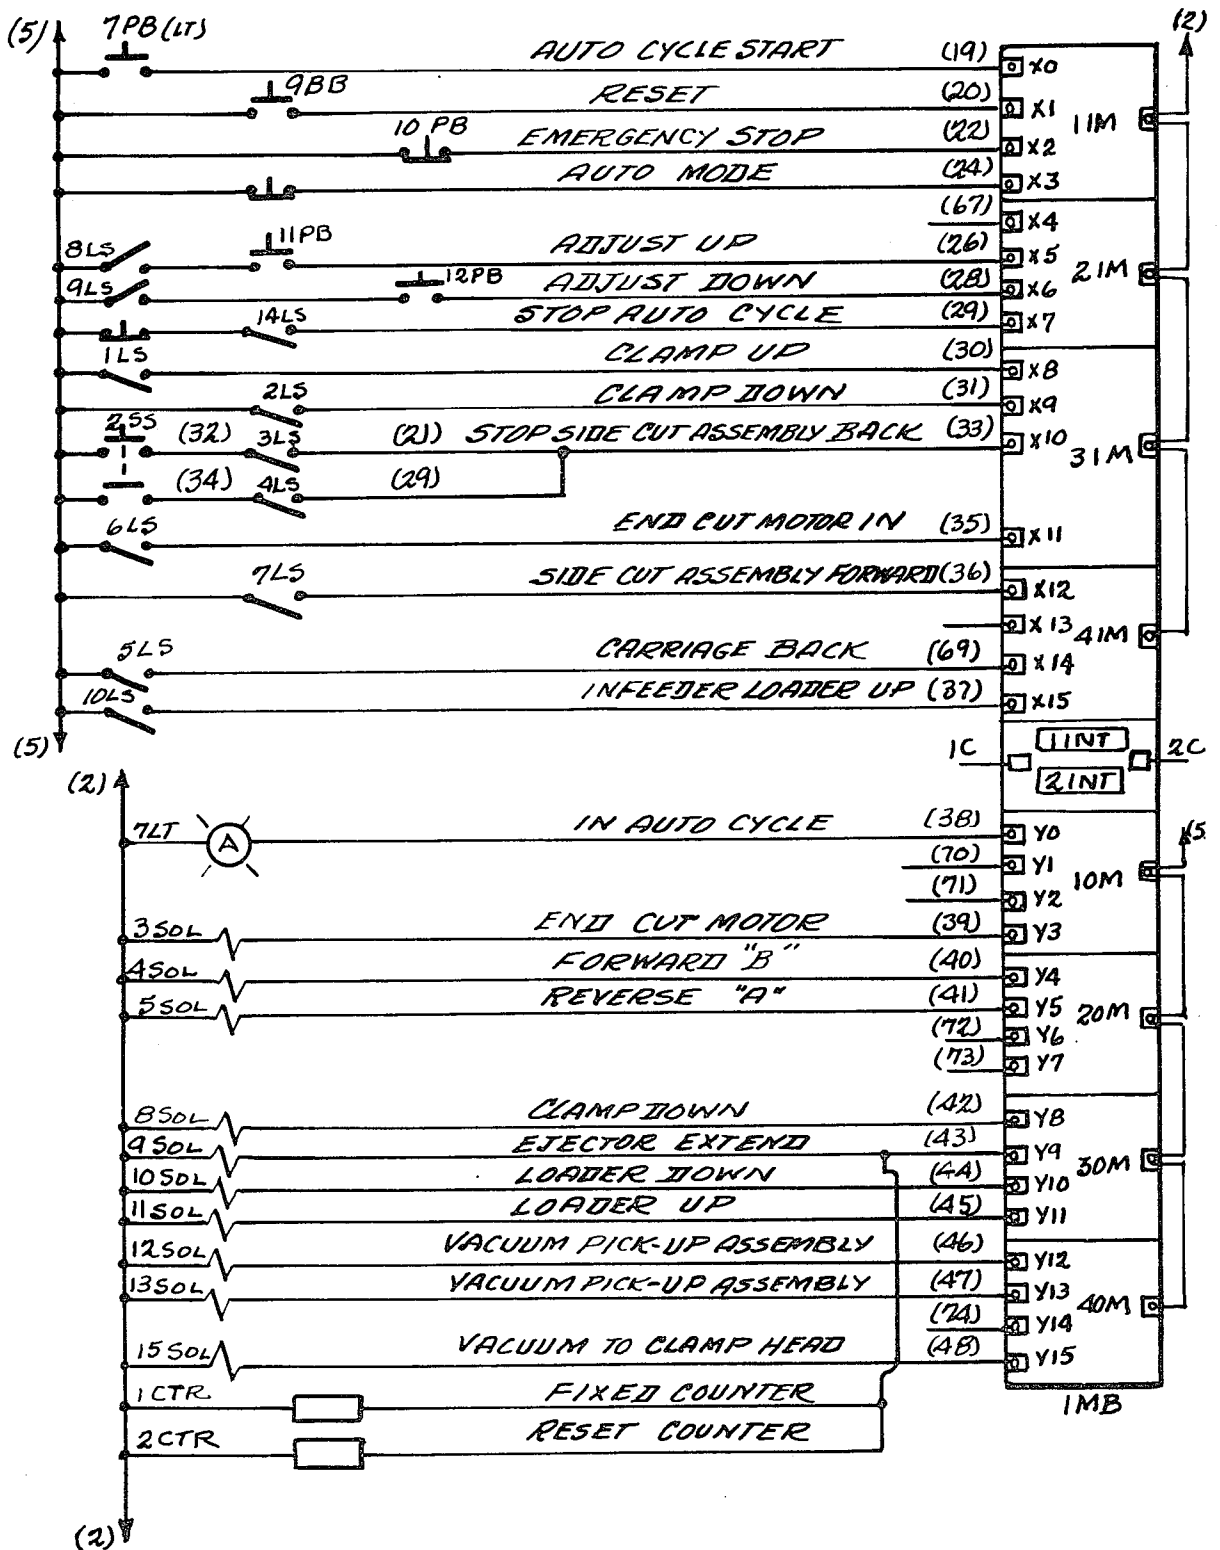 (5) 7PB (LT) (2)
AUTO CYCLE START (19) X0
9BB RESET (20) X1 11M
10 PB EMERGENCY STOP (22) X2
AUTO MODE (24) X3
(67) X4
8LS 11PB ADJUST UP (26) X5 21M
9LS 12PB ADJUST DOWN (28) X6
14LS STOP AUTO CYCLE (29) X7
1LS CLAMP UP (30) X8
2LS CLAMP DOWN (31) X9
2SS (32) 3LS (21) STOP SIDE CUT ASSEMBLY BACK (33) X10 31M
(34) 4LS (29)
6LS END CUT MOTOR IN (35) X11
7LS SIDE CUT ASSEMBLY FORWARD (36) X12
X13 41M
5LS CARRIAGE BACK (69) X14
10LS INFEEDER LOADER UP (37) X15
(5) 1C 1INT 2C
2INT
(2)
7LT A IN AUTO CYCLE (38) Y0 (5
(70) Y1 10M
(71) Y2
3SOL END CUT MOTOR (39) Y3
4SOL FORWARD "B" (40) Y4
5SOL REVERSE "A" (41) Y5 20M
(72) Y6
(73) Y7
8SOL CLAMP DOWN (42) Y8
9SOL EJECTOR EXTEND (43) Y9 30M
10SOL LOADER DOWN (44) Y10
11SOL LOADER UP (45) Y11
12SOL VACUUM PICK-UP ASSEMBLY (46) Y12
13SOL VACUUM PICK-UP ASSEMBLY (47) Y13 40M
(74) Y14
15SOL VACUUM TO CLAMP HEAD (48) Y15
1CTR FIXED COUNTER 1MB
2CTR RESET COUNTER
(2)